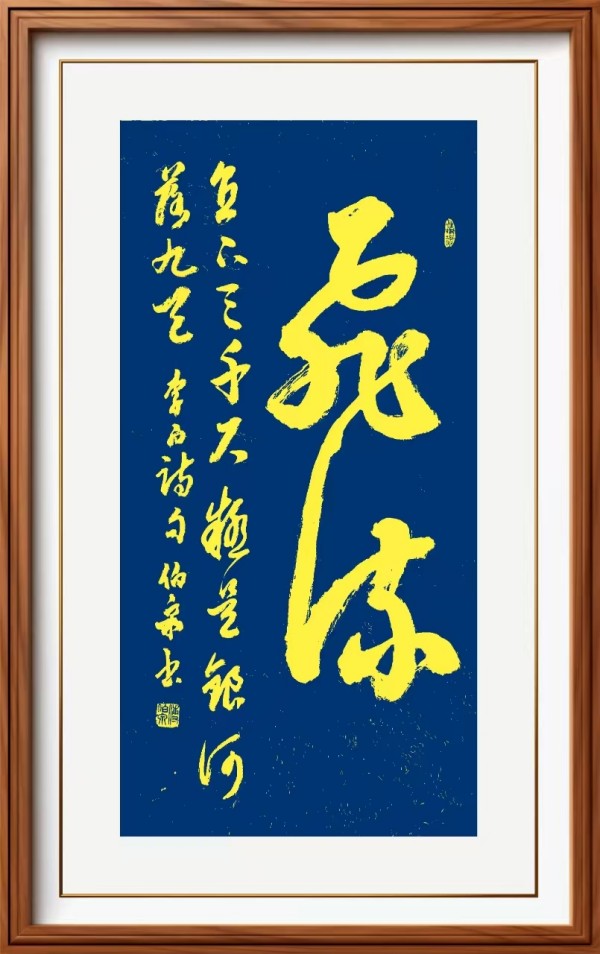 飛流
直下三千尺疑是銀河
落九天 李白詩句 伯宗書